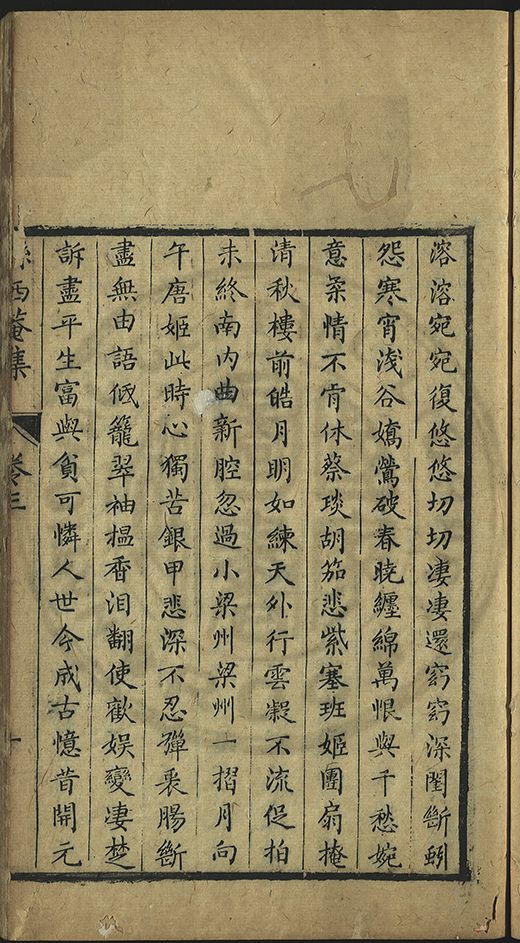 溶溶宛宛復悠悠切切凄凄還窈窈深閨斷蚓
怨寒宵淺谷嬌鶯破春曉纏綿萬恨與千愁婉
意柔情不肯休蔡琰胡笳悲紫塞班姬團扇掩
清秋樓前皓月明如練天外行雲凝不流促拍
未終南內曲新腔忽過小梁州梁州一摺月向
午唐姬此時心獨苦銀甲悲深不忍彈衷腸斷
盡無由語低籠翠袖揾香泪翻使歡娛變凄楚
訴盡平生富與貧可憐人世今成古憶昔開元
西菴集 卷三